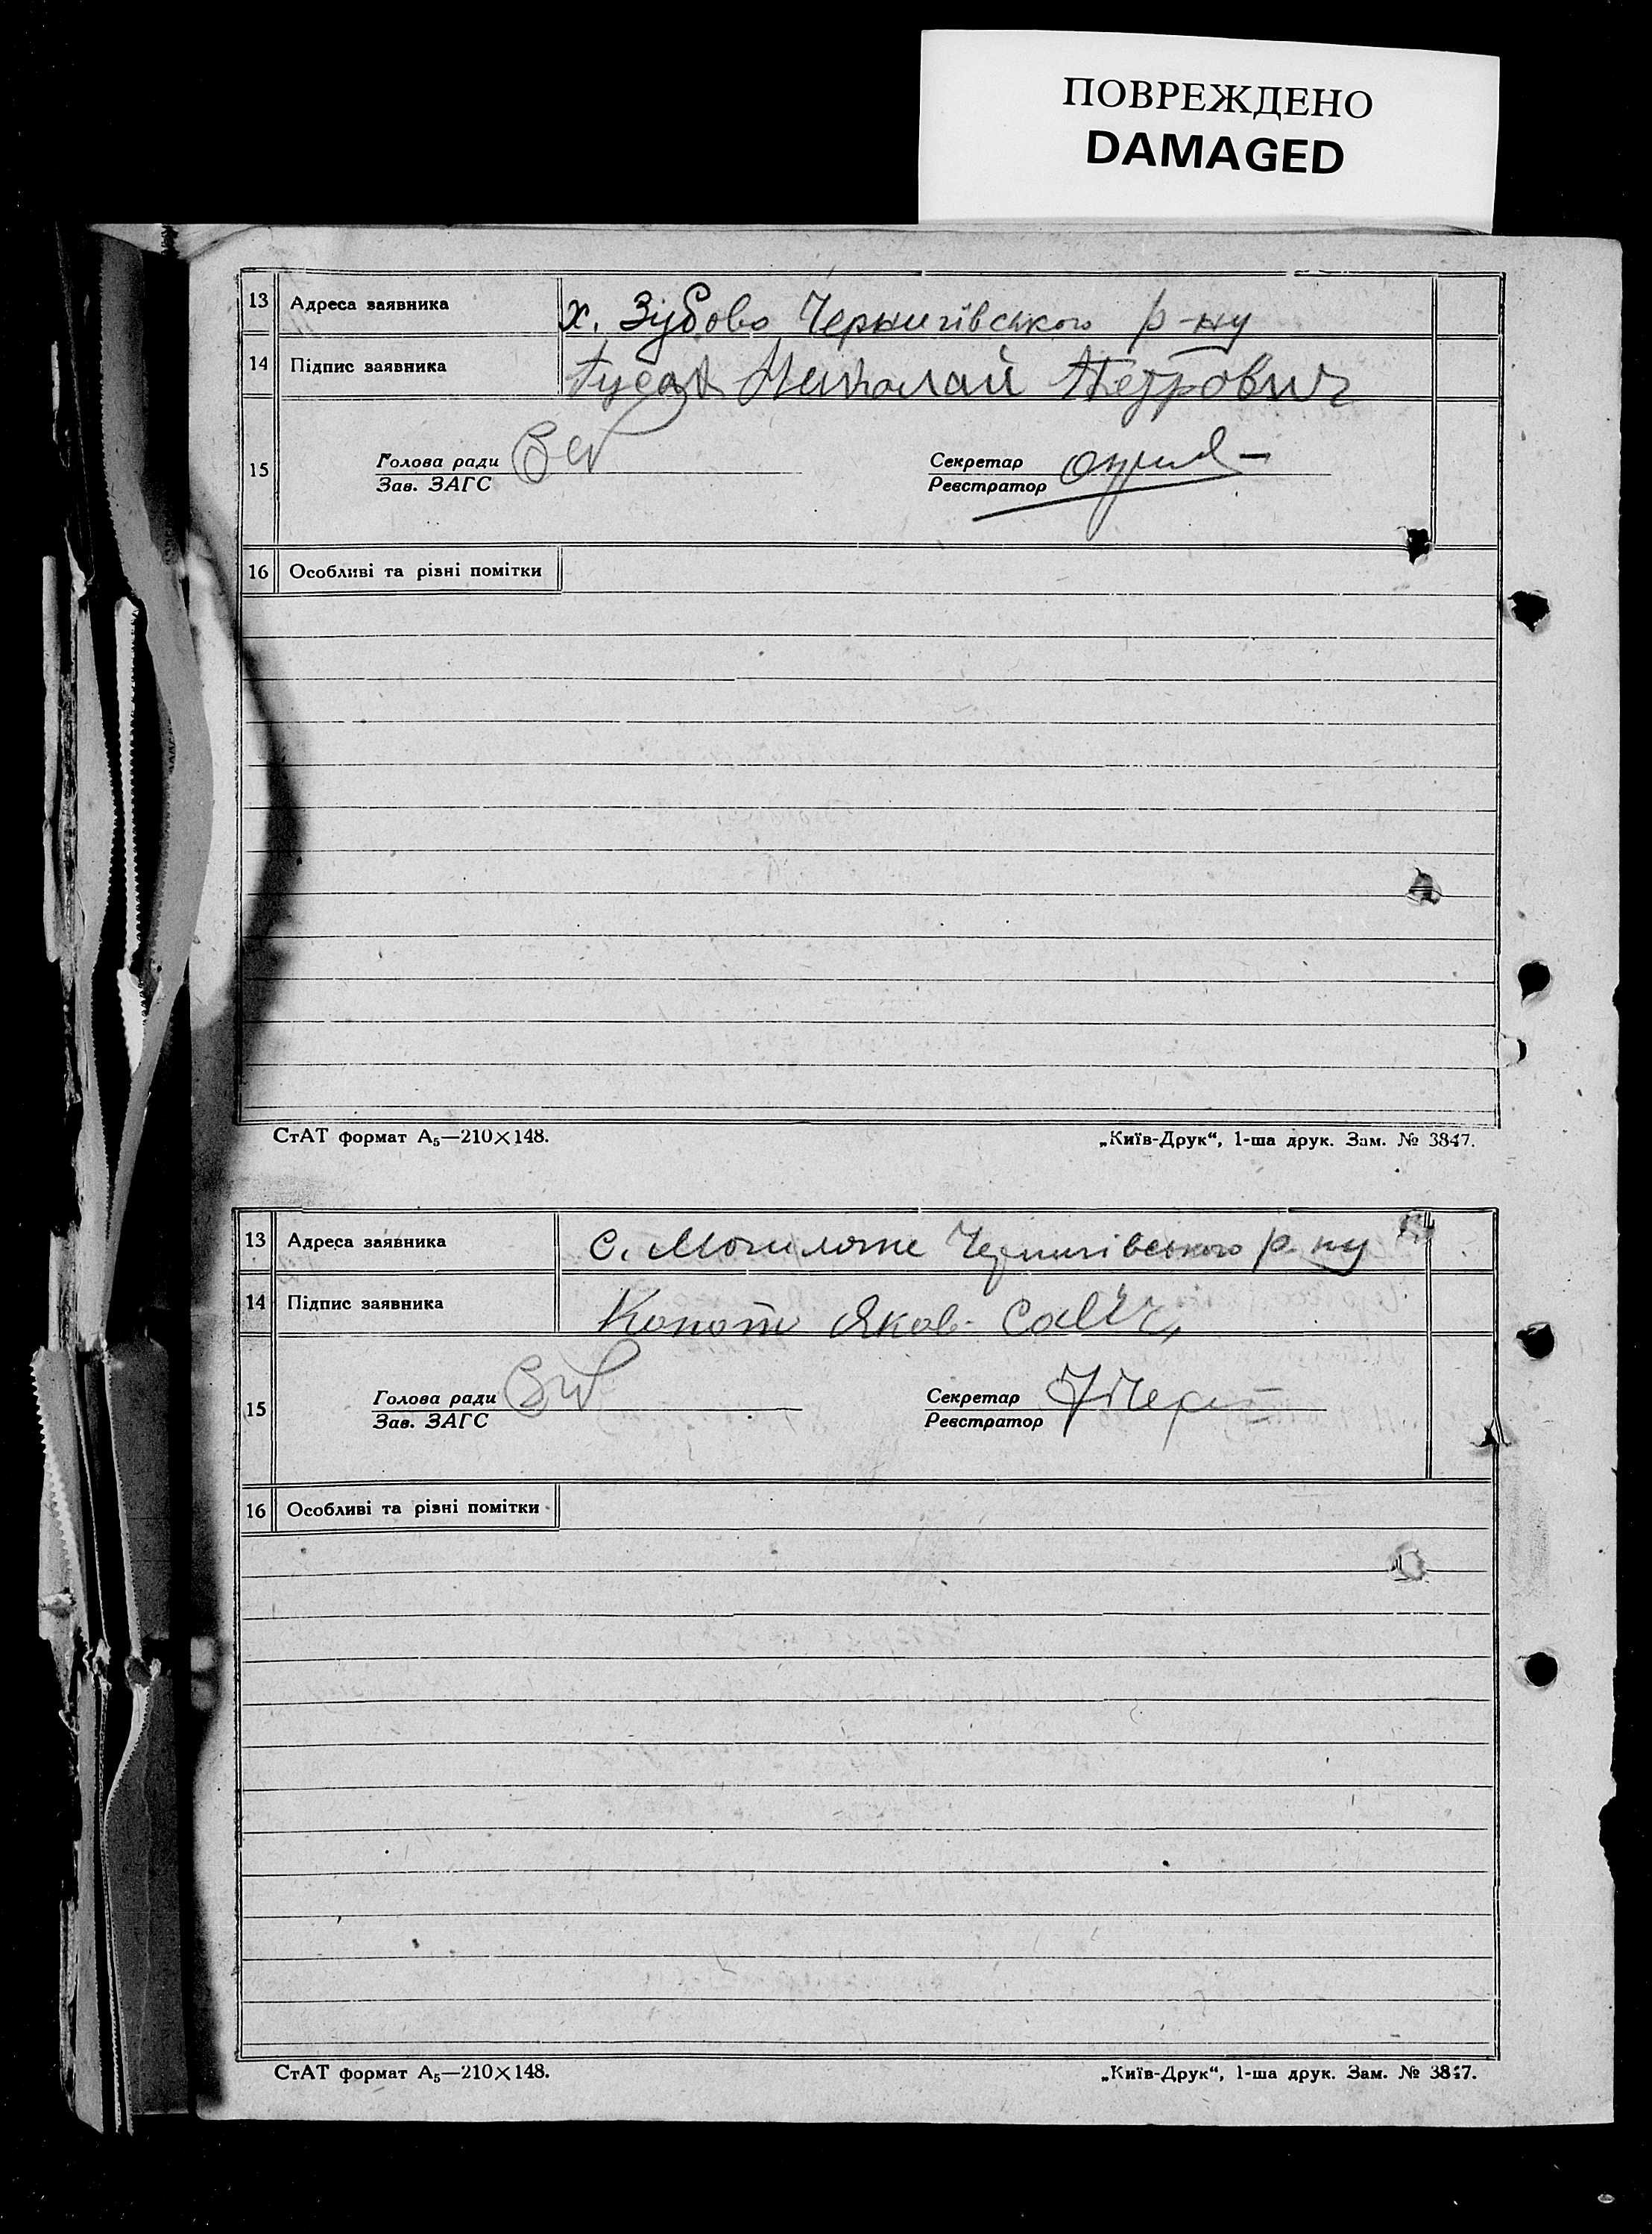 ПОВРЕЖДЕНО
DAMAGED
13 Адреса заявника х. Зубово Чернигівського р-ну
14 Підпис заявника Николай Петрович
15 Голова ради Секретар
Зав. ЗАГС Реєстратор
16 Особливі та різні помітки
СтАТ формат А₅—210×148. „Київ-Друк“, 1-ша друк. Зам. № 3847.
13 Адреса заявника с. Чернигівського р-ну
14 Підпис заявника Яков
15 Голова ради Секретар
Зав. ЗАГС Реєстратор
16 Особливі та різні помітки
СтАТ формат А₅—210×148. „Київ-Друк“, 1-ша друк. Зам. № 3847.